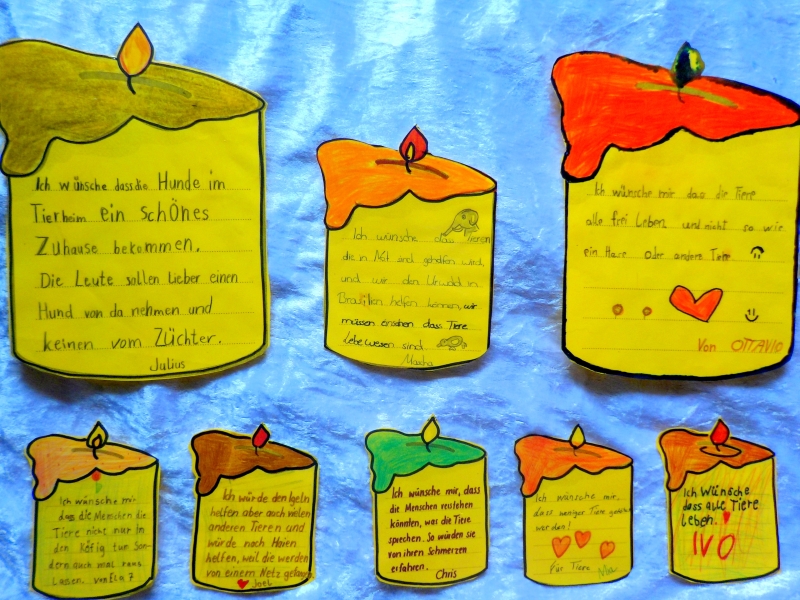 Ich wünsche dass die Hunde im
Tierheim ein schönes
Zuhause bekommen.
Die Leute sollen lieber einen
Hund von da nehmen und
keinen vom Züchter.
Julius
Ich wünsche dass Tieren
die in Not sind geholfen wird,
und wir den Urwald in
Brasilien helfen können, wir
müssen einsehen dass Tiere
Lebewesen sind.
Mascha
Ich wünsche mir das die Tiere
alle frei Leben und nicht so wie
ein Hase oder andere Tiere
Von OTTAVIO
Ich wünsche mir
dass die Menschen die
Tiere nicht nur in
den Käfig tun Son-
dern auch mal raus
Lassen. von Ela 7
Ich würde den Igeln
helfen aber auch vielen
anderen Tieren und
würde noch Haien
helfen, weil die werden
von einem Netz
Joel
Ich wünsche mir, dass
die Menschen verstehen
könnten, was die Tiere
sprechen. So würden sie
von ihren Schmerzen
erfahren.
Chris
Ich wünsche mir,
dass weniger Tiere
werden!
Für Tiere
Ich Wünsche
dass alle Tiere
leben.
IVO